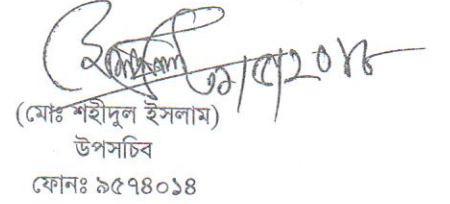 (মোঃ শহীদুল ইসলাম)
উপসচিব
ফোনঃ ৯৫৭৪০১৪